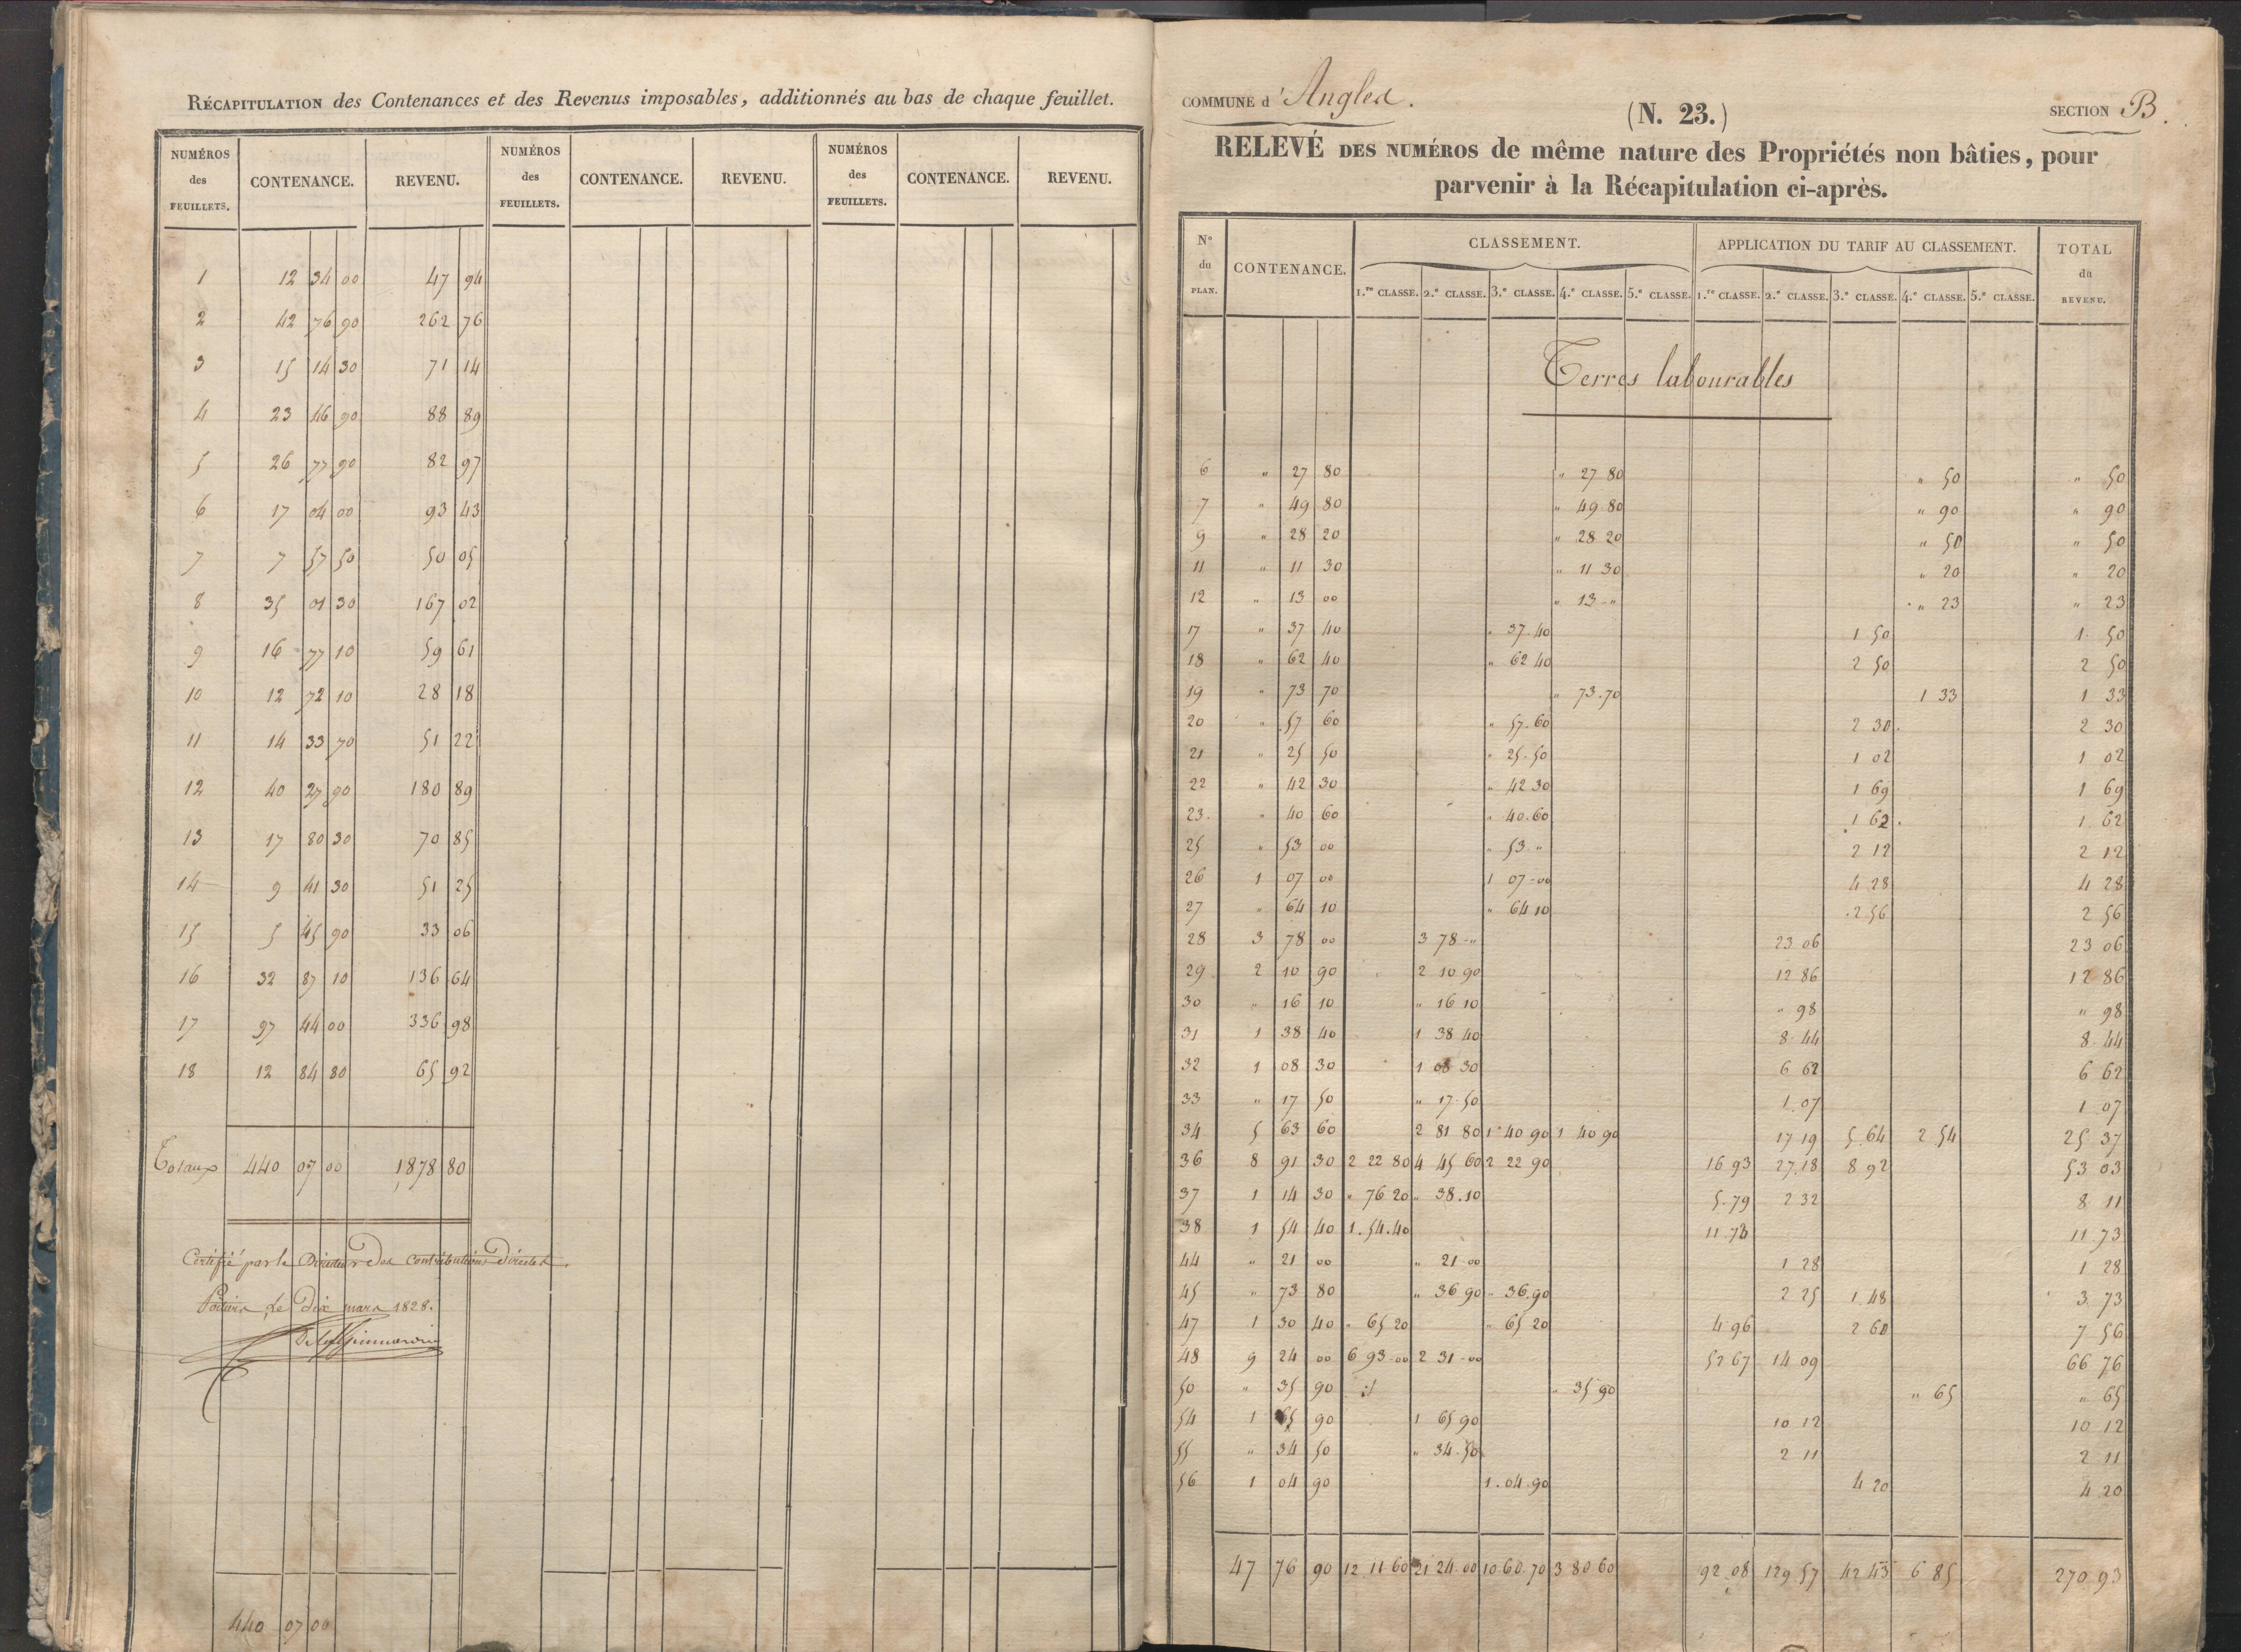 RÉCAPITULATION des Contenances et des Revenus imposables, additionnés au bas de chaque feuillet.
NUMÉROS des FEUILLETS. CONTENANCE. REVENU. NUMÉROS des FEUILLETS. CONTENANCE. REVENU. NUMÉROS des FEUILLETS. CONTENANCE. REVENU.
1 12 34 00 47 94
2 42 76 90 262 76
3 15 14 30 71 14
4 23 46 90 88 89
5 26 77 90 82 97
6 17 04 00 93 43
7 7 57 50 50 05
8 35 01 30 167 02
9 16 77 10 59 61
10 12 72 10 28 18
11 14 33 70 51 22
12 40 27 90 180 89
13 17 80 30 70 85
14 9 41 30 51 25
15 5 45 90 33 06
16 32 87 10 136 64
17 97 44 00 336 98
18 12 84 80 65 92
Totaux 440 07 00 1,878 80
Certifié par le Directeur des Contributions directes.
Poitiers, le Dix mars 1828.
440 07 00
COMMUNE d'Angles.
(N. 23.)
SECTION B.
RELEVÉ DES NUMÉROS de même nature des Propriétés non bâties, pour
parvenir à la Récapitulation ci-après.
N° du PLAN. CONTENANCE. CLASSEMENT. APPLICATION DU TARIF AU CLASSEMENT. TOTAL du REVENU.
1.re CLASSE. 2.e CLASSE. 3.e CLASSE. 4.e CLASSE. 5.e CLASSE. 1.re CLASSE. 2.e CLASSE. 3.e CLASSE. 4.e CLASSE. 5.e CLASSE.
Terres labourables
6 " 27 80 " 27 80 " 50 " 50
7 " 49 80 " 49 80 " 90 " 90
9 " 28 20 " 28 20 " 50 " 50
11 " 11 30 " 11 30 " 20 " 20
12 " 13 00 " 13 - " " 23 " 23
17 " 37 40 " 37.40 1 50 1 50
18 " 62 40 " 62 40 2 50 2 50
19 " 73 70 " 73.70 1 33 1 33
20 " 57 60 " 57.60 2 30 2 30
21 " 25 50 " 25.50 1 02 1 02
22 " 42 30 " 42 30 1 69 1 69
23. " 40 60 " 40.60 1 62 1 62
25 " 53 00 " 53 " 2 12 2 12
26 1 07 00 1 07-00 4 28 4 28
27 " 64 10 " 64 10 2 56 2 56
28 3 78 00 3 78-" 23 06 23 06
29 2 10 90 2 10 90 12 86 12 86
30 " 16 10 " 16 10 " 98 " 98
31 1 38 40 1 38 40 8 44 8 44
32 1 08 30 1 08 30 6 62 6 62
33 " 17 50 " 17.50 1.07 1 07
34 5 63 60 2 81 80 1 40 90 1 40 90 17 19 5 64 2 54 25 37
36 8 91 30 2 22 80 4 45 60 2 22 90 16 93 27.18 8 92 53 03
37 1 14 30 " 76 20 " 38.10 5.79 2 32 8 11
38 1 54 40 1.54.40 11.73 11.73
44 " 21 00 " 21-00 1 28 1 28
45 " 73 80 " 36 90 " 36.90 2 25 1.48 3 73
47 1 30 40 " 65 20 " 65 20 4 96 2 60 7 56
48 9 24 00 6 93-00 2 31-00 52 67 14 09 66 76
50 " 35 90 " 35 90 " 65 " 65
54 1 65 90 1 65 90 10 12 10 12
55 " 34 50 " 34.50 2 11 2 11
56 1 04 90 1.04.90 4 20 4 20
47 76 90 12 11 60 21 24.00 10.60.70 3 80 60 92.08 129 57 42 43 6 85 270.93